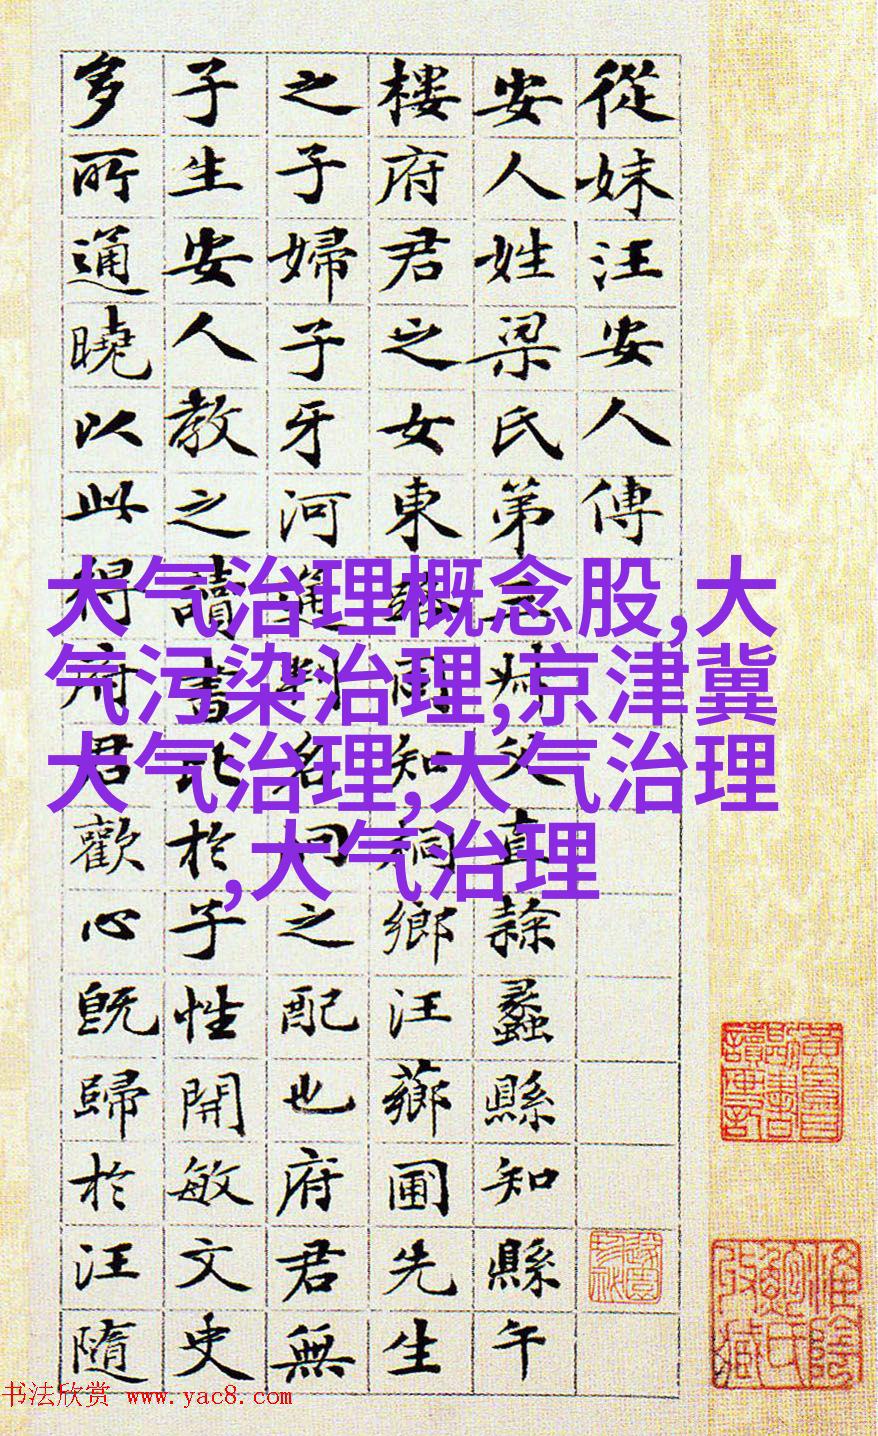 從妹汪安人傅
安人姓梁氏弟三叔父直隸蠡縣知縣午
樓府君之女東莊同知桐鄉汪薌圃先生
之子婦子牙河通判名詞之配也府君無
子生安人教之讀書比於子性開敏文史
多所通曉以此得府君歡心既歸於汪隨
大气治理概念股,大
气污染治理,京津冀
大气治理,大气治理
,大气治理
书法欣赏 www.yac8.com